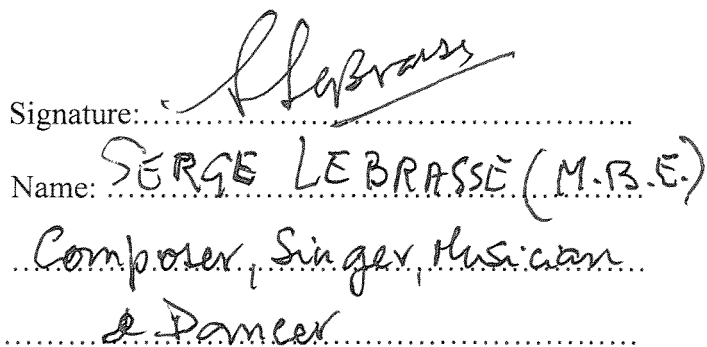 Signature: S LeBrasse
Name: SERGE LEBRASSE (M.B.E.)
Composer, Singer, Musician
& Dancer